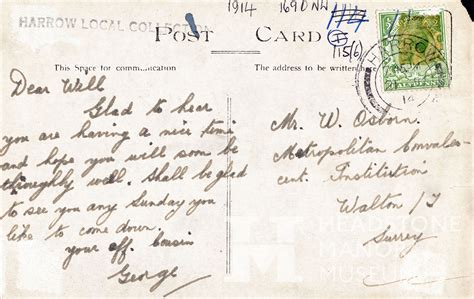 HARROW LOCAL COLLECTION
1914 169 D NW
15(6)
POST CARD
This Space for communication
The address to be written here
Dear Will
Glad to hear
you are having a nice time
and hope you will soon be
thoroughly well. Shall be glad
to see you any Sunday you
like to come down.
your aff. Cousin
George
Mr. W. Osborn.
Metropolitan Convales-
cent. Institition
Walton /T
Surrey
HEADSTONE
MANOR
MUSEUM